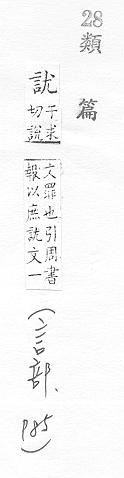 28
類篇
訧
于求
切說
文罪也引周書
報以庶訧文一
(言部、P85)